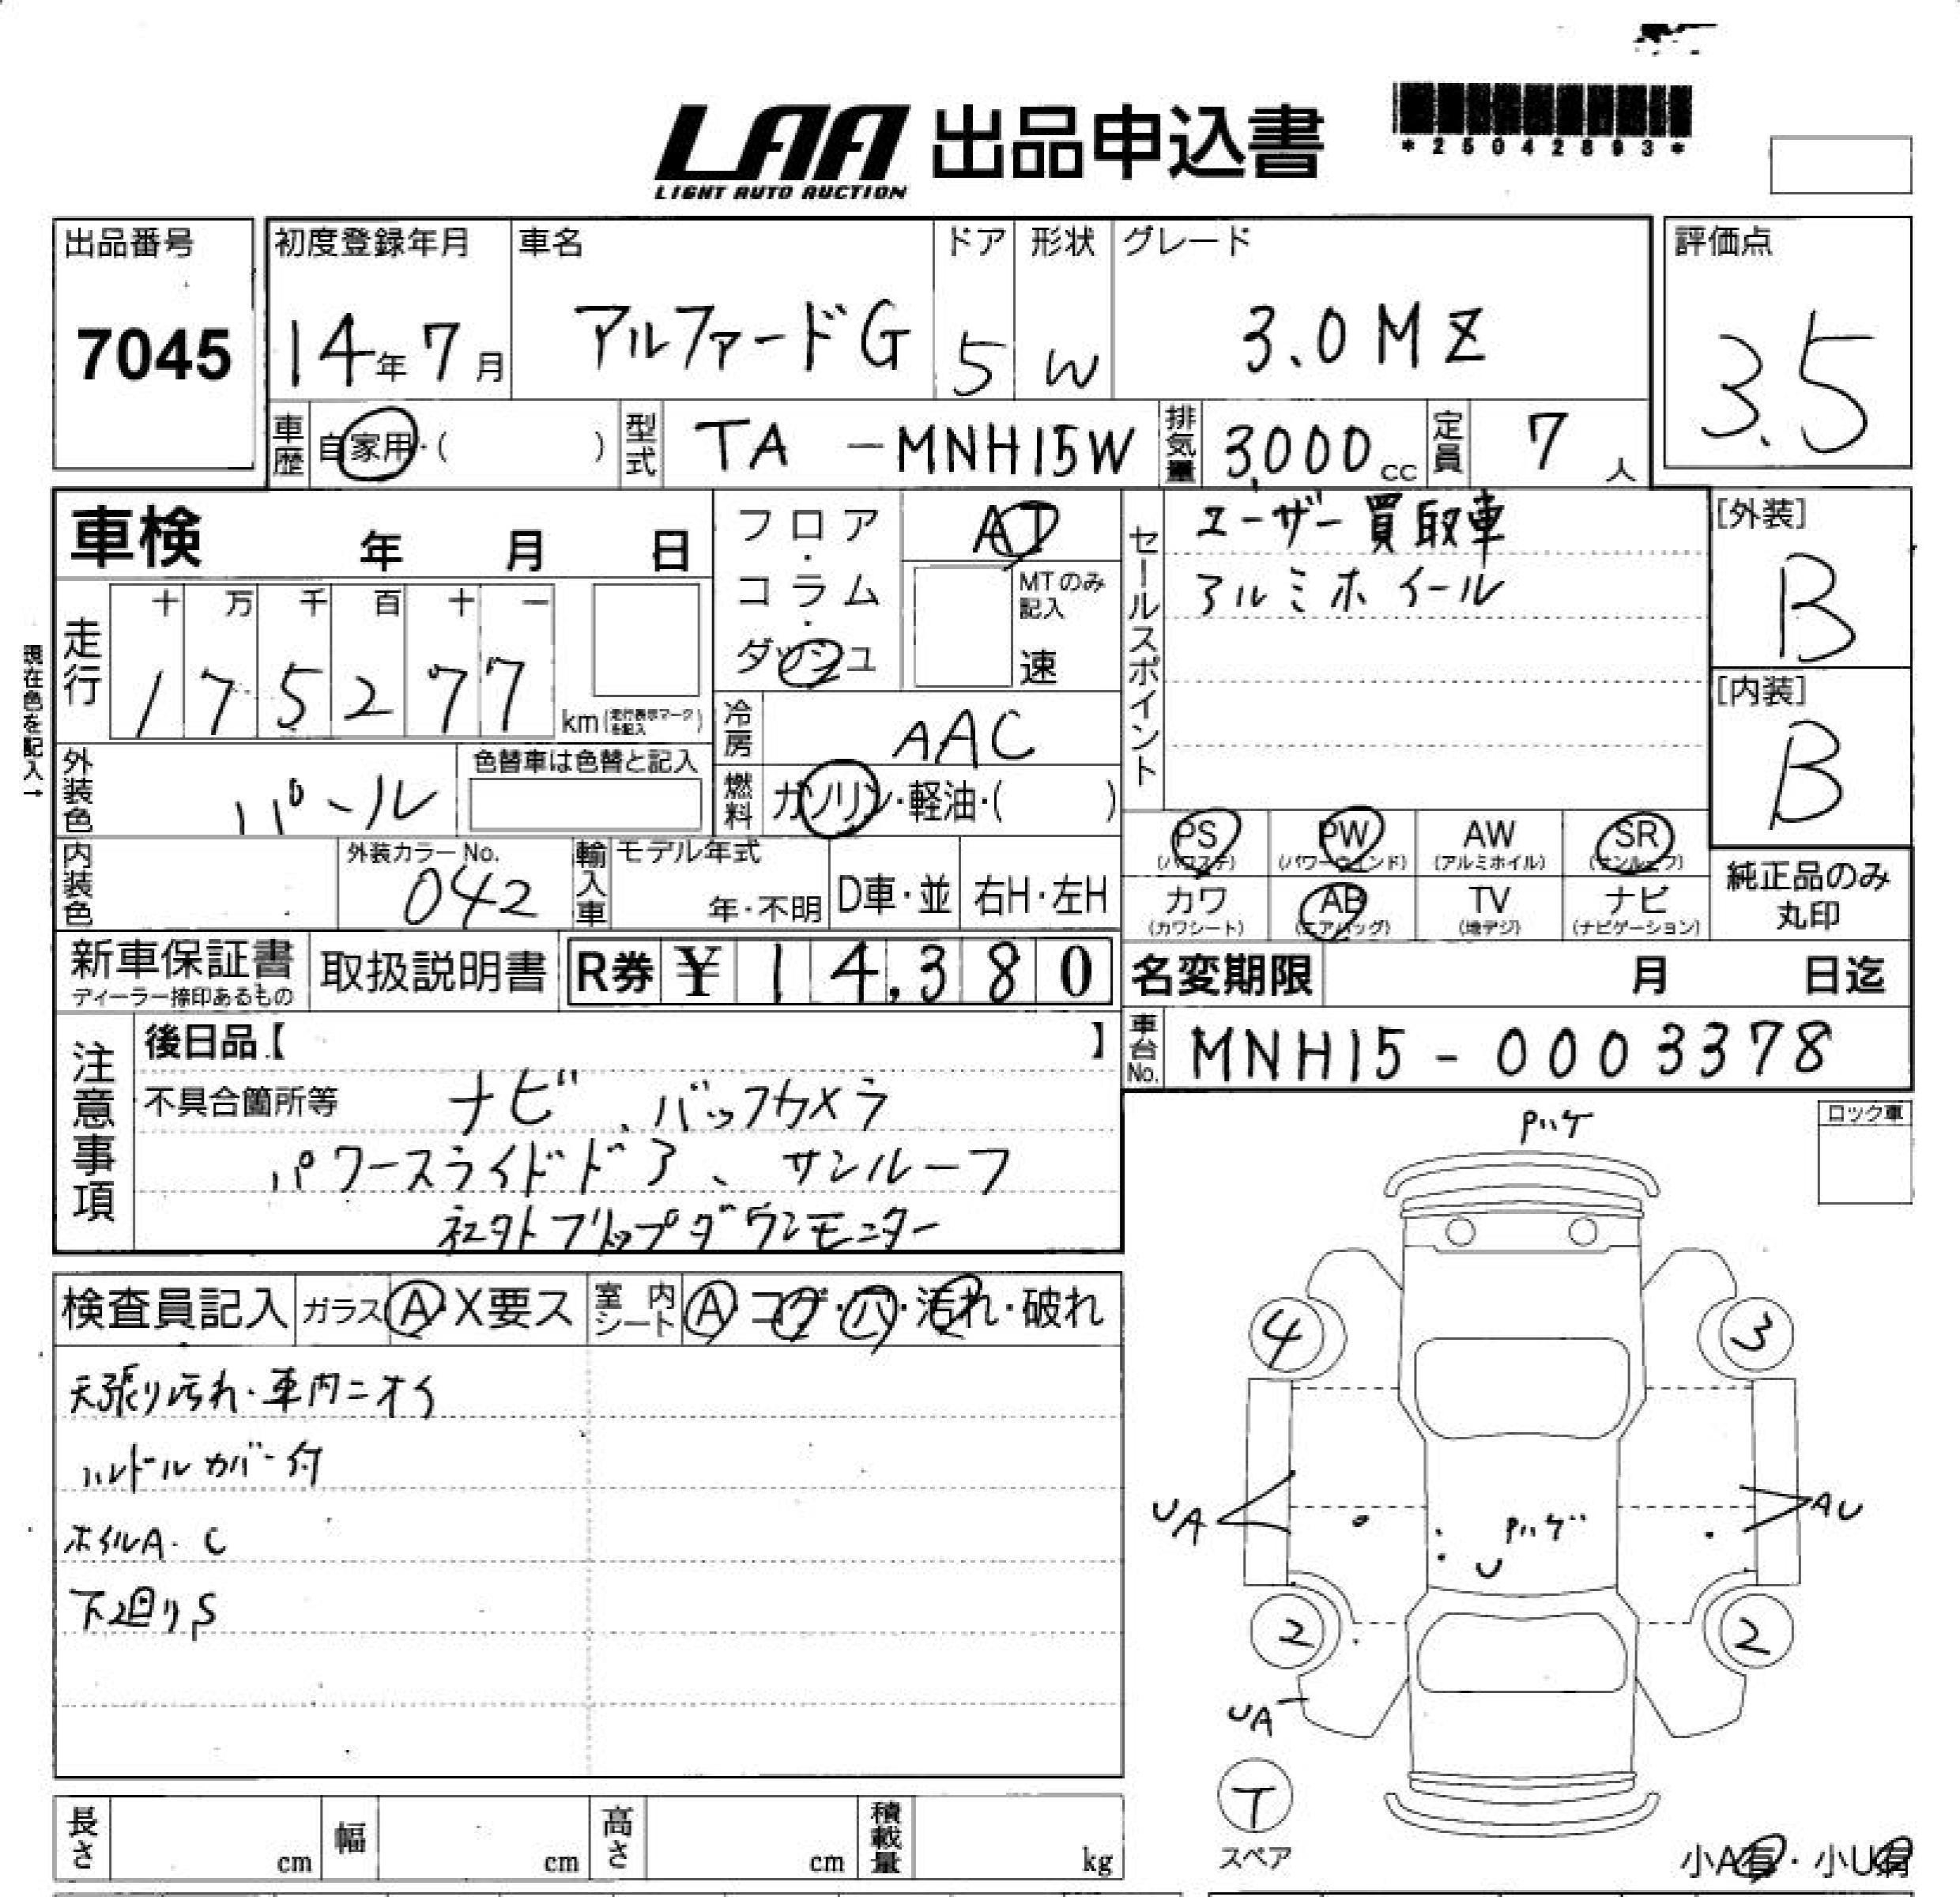 LAA 出品申込書
LIGHT AUTO AUCTION
*25042893*
出品番号
7045
初度登録年月
14年7月
車名
アルファードG
ドア
5
形状
W
グレード
3.0MZ
評価点
3.5
車歴 自家用・( )
型式 TA -MNH15W
排気量 3,000cc
定員 7人
車検 年 月 日
フロア・コラム・ダッシュ
AT
MTのみ記入
速
セールスポイント
ユーザー買取車
アルミホイール
[外装]
B
[内装]
B
現在色を記入→
走行
十 万 千 百 十 一
1 7 5 2 7 7
km(走行表示マークを記入)
冷房 AAC
燃料 ガソリン・軽油・( )
外装色 パール
色替車は色替と記入
内装色
外装カラーNo.
042
輸入車
モデル年式
年・不明
D車・並
右H・左H
PS
(パワステ)
PW
(パワーウインド)
AW
(アルミホイル)
SR
(サンルーフ)
カワ
(カワシート)
AB
(エアバッグ)
TV
(地デジ)
ナビ
(ナビゲーション)
純正品のみ
丸印
新車保証書
ディーラー捺印あるもの
取扱説明書
R券 ¥14,380
名変期限 月 日迄
車台No. MNH15-0003378
注意事項
後日品【 】
不具合箇所等
ナビ、バックカメラ
パワースライドドア、サンルーフ
社外フリップダウンモニター
検査員記入
ガラス A・X要ス
室内シート A・コゲ・穴・汚れ・破れ
天張り汚れ・車内ニオイ
ハンドルカバー付
ホイルA・C
下廻りS
ロック車
Pハゲ
4
3
UA
AU
Pハゲ
U
2
2
UA
T
スペア
小A有・小U有
長さ cm
幅 cm
高さ cm
積載量 kg